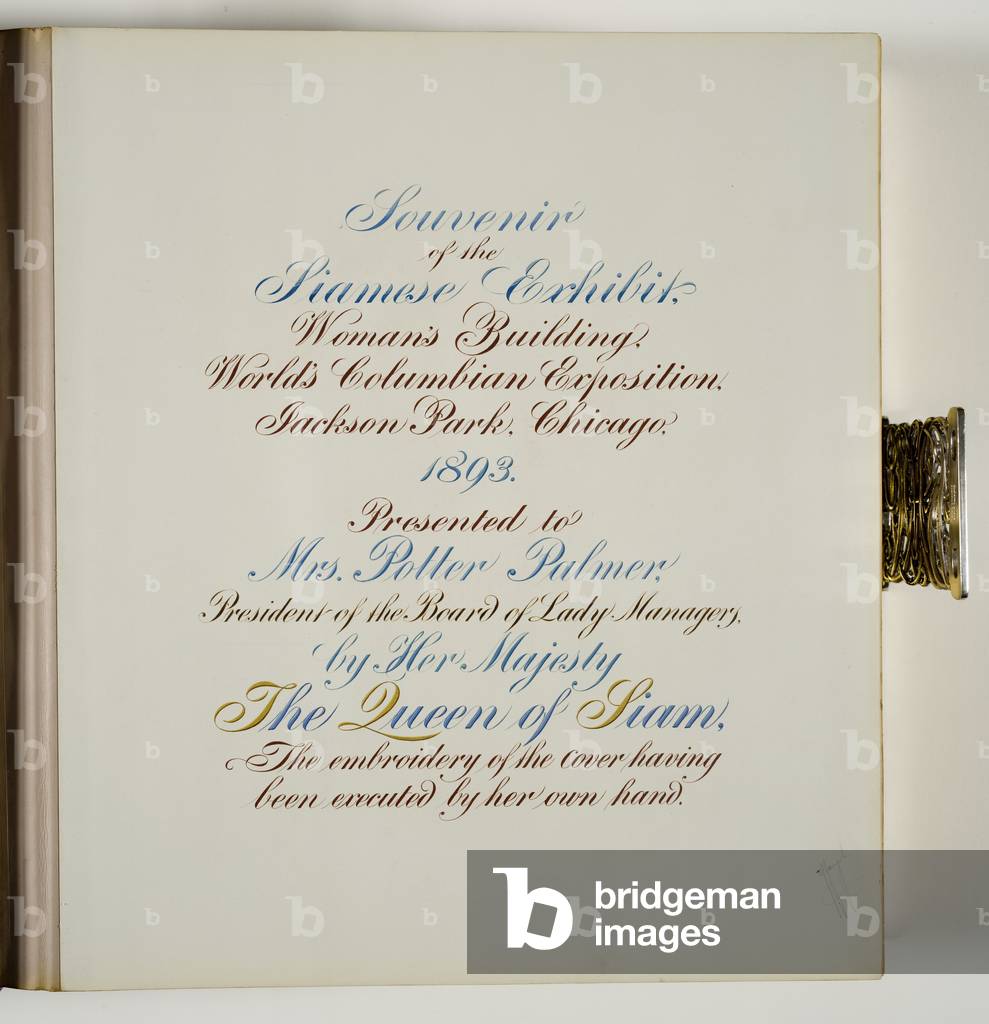 Souvenir
of the
Siamese Exhibit,
Woman's Building,
World's Columbian Exposition,
Jackson Park, Chicago,
1893.
Presented to
Mrs. Potter Palmer,
President of the Board of Lady Managers,
by Her Majesty
The Queen of Siam,
The embroidery of the cover having
been executed by her own hand.
bridgeman
images